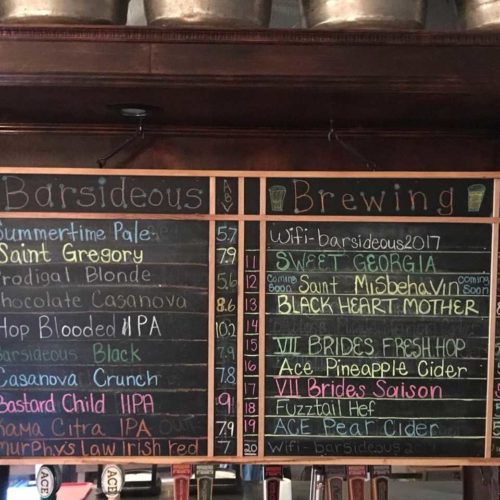 Barsideous ABV Brewing
Summertime Pale 5.7
Saint Gregory 7.9
Prodigal Blonde 5.6
Chocolate Casanova 8.6
Hop Blooded IIPA 10.2
Barsideous Black 7.9
Casanova Crunch 7.8
Bastard Child IIPA 9
Kama Citra IPA 7.9
Murphy's Law Irish red 7
Wifi-barsideous2017
11 SWEET GEORGIA
12 Coming Soon Saint Misbehavin Coming Soon
13 BLACK HEART MOTHER
14
15 VII BRIDES FRESH HOP
16 Ace Pineapple Cider
17 VII Brides Saison
18 Fuzztail Hef
19 ACE Pear Cider
20 Wifi-barsideous
ACE
ACE